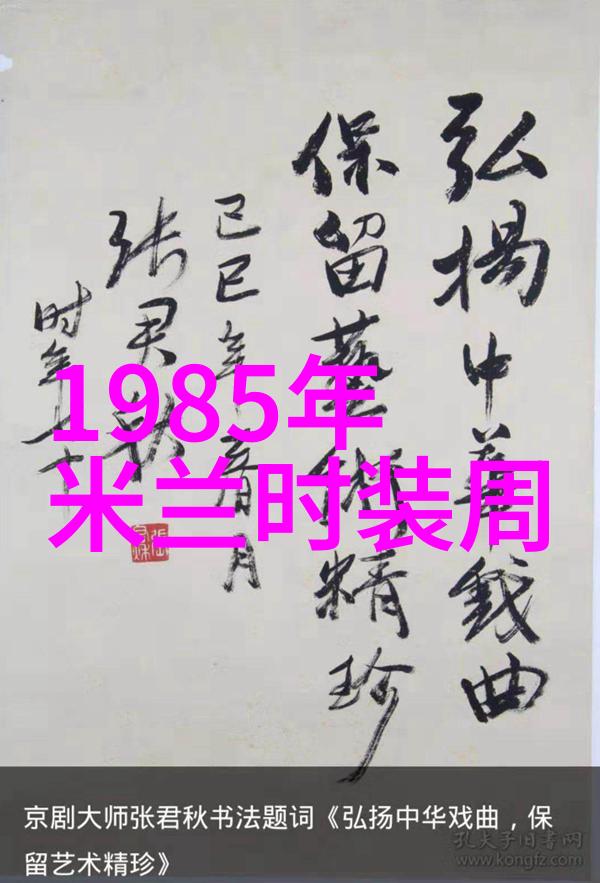 弘揚中華戲曲
保留藝術精珍
己巳年
张君秋
时年七十
1985年
米兰时装周
京剧大师张君秋书法题词《弘扬中华戏曲，保
留艺术精珍》
孔夫子旧书网
www.kongfz.com